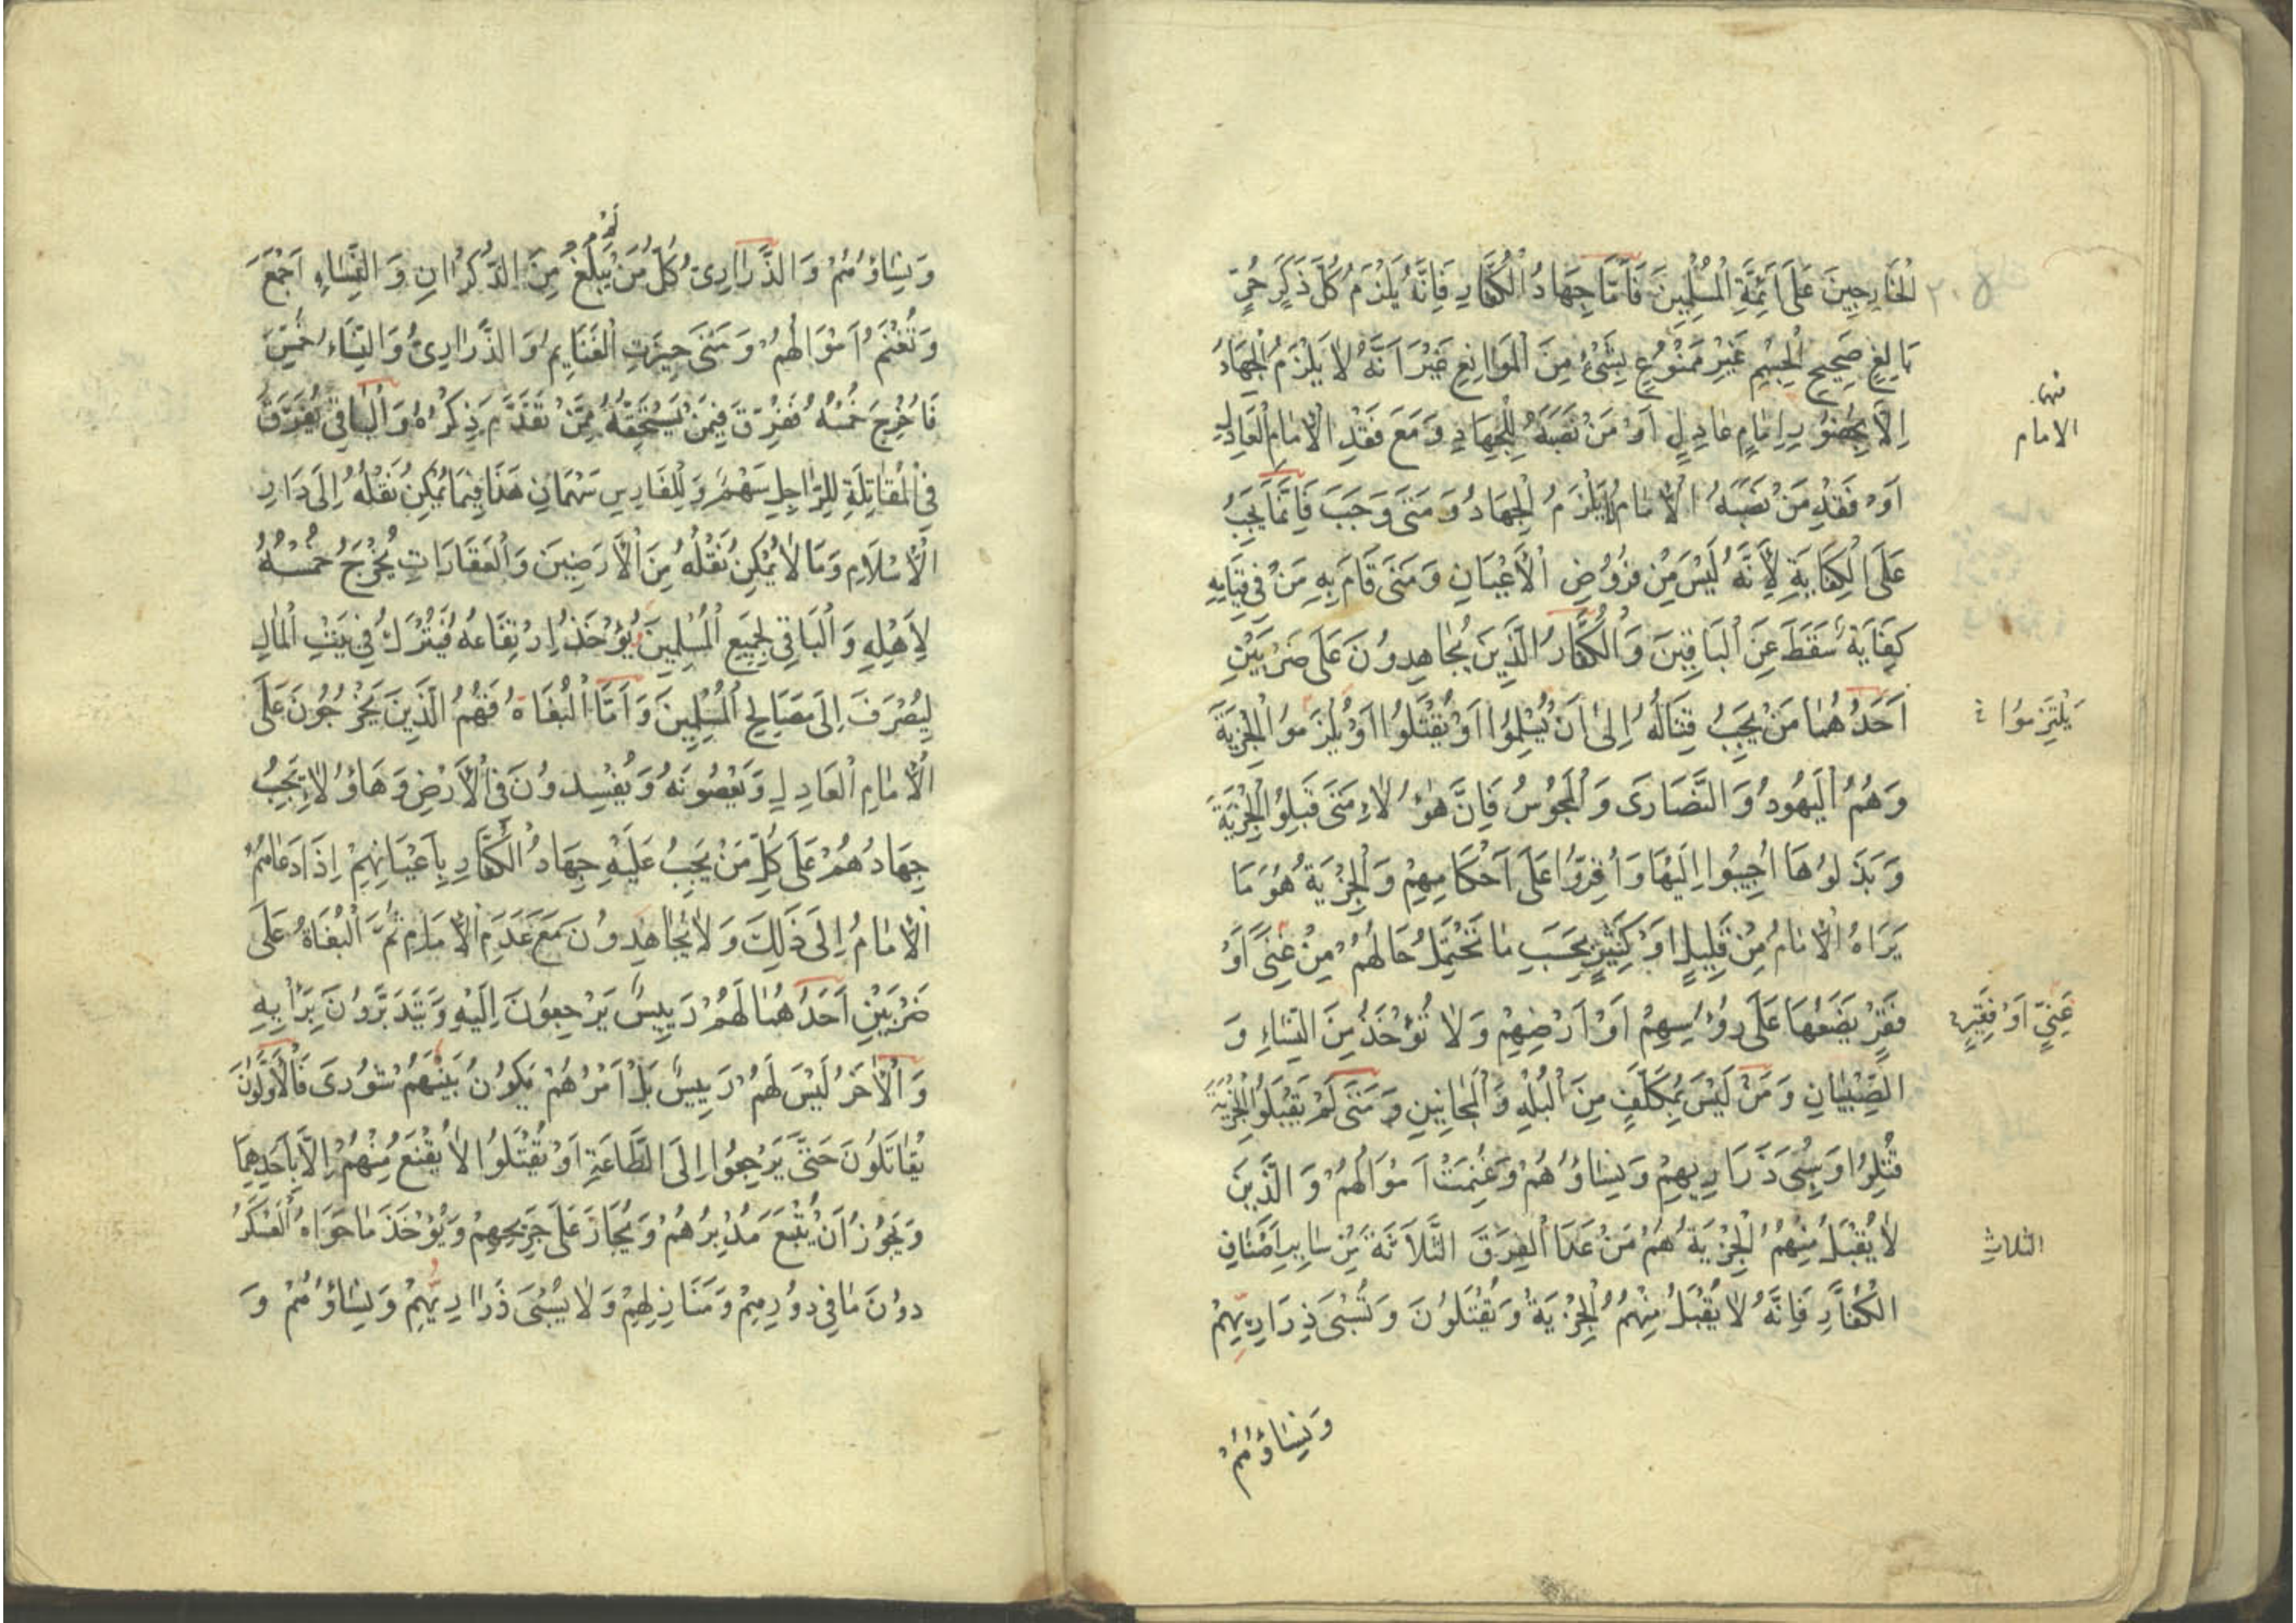 الْخَارِجِينَ عَلَى أَئِمَّةِ الْمُسْلِمِينَ فَأَمَّا جِهَادُ الْكُفَّارِ فَإِنَّهُ يَلْزَمُ كُلَّ ذَكَرٍ حُرٍّ
بَالِغٍ صَحِيحِ الْجِسْمِ غَيْرِ مَمْنُوعٍ بِشَيْءٍ مِنَ الْمَوَانِعِ غَيْرَ أَنَّهُ لَا يَلْزَمُ الْجِهَادُ
إِلَّا بِحُضُورِ إِمَامٍ عَادِلٍ أَوْ مَنْ نَصَبَهُ لِلْجِهَادِ وَمَعَ فَقْدِ الْإِمَامِ الْعَادِلِ
الامام
أَوْ فَقْدِ مَنْ نَصَبَهُ الْإِمَامُ لَا يَلْزَمُ الْجِهَادُ وَمَتَى وَجَبَ فَإِنَّمَا يَجِبُ
عَلَى الْكِفَايَةِ لِأَنَّهُ لَيْسَ مِنْ فُرُوضِ الْأَعْيَانِ وَمَتَى قَامَ بِهِ مَنْ فِي قِيَامِهِ
كِفَايَةٌ سَقَطَ عَنِ الْبَاقِينَ وَالْكُفَّارُ الَّذِينَ يُجَاهِدُونَ عَلَى ضَرْبَيْنِ
أَحَدُهُمَا مَنْ يَجِبُ قِتَالُهُ إِلَى أَنْ يُسْلِمُوا أَوْ يُقْتَلُوا أَوْ يُلْزَمُوا الْجِزْيَةَ
يَلْتَزِمُوا
وَهُمُ الْيَهُودُ وَالنَّصَارَى وَالْمَجُوسُ فَإِنَّ هَؤُلَاءِ مَتَى قَبِلُوا الْجِزْيَةَ
وَبَذَلُوهَا أُجِيبُوا إِلَيْهَا وَأُقِرُّوا عَلَى أَحْكَامِهِمْ وَالْجِزْيَةُ هُوَ مَا
يَرَاهُ الْإِمَامُ مِنْ قَلِيلٍ أَوْ كَثِيرٍ بِحَسَبِ مَا تَحْتَمِلُ حَالُهُمْ مِنْ غِنًى أَوْ
فَقْرٍ يَضَعُهَا عَلَى رُؤُسِهِمْ أَوْ أَرْضِهِمْ وَلَا تُؤْخَذُ مِنَ النِّسَاءِ وَ
غَنِيٍّ أَوْ فَقِيرٍ
الصِّبْيَانِ وَمَنْ لَيْسَ بِمُكَلَّفٍ مِنَ الْبُلْهِ وَالْمَجَانِينِ وَمَتَى لَمْ يَقْبَلُوا الْجِزْيَةَ
قُتِلُوا وَسُبِيَ ذَرَارِيهِمْ وَنِسَاؤُهُمْ وَغُنِمَتْ أَمْوَالُهُمْ وَالَّذِينَ
لَا يُقْبَلُ مِنْهُمُ الْجِزْيَةُ هُمْ مَنْ عَدَا الْفِرَقَ الثَّلَاثَةَ مِنْ سَايِرِ أَصْنَافِ
الثلاث
الْكُفَّارِ فَإِنَّهُ لَا يُقْبَلُ مِنْهُمُ الْجِزْيَةُ وَيُقْتَلُونَ وَتُسْبَى ذَرَارِيهِمْ
وَنِسَاؤُهُمْ
وَنِسَاؤُهُمْ وَالذَّرَارِي كُلُّ مَنْ يَبْلُغْ مِنَ الذُّكْرَانِ وَالنِّسَاءِ أَجْمَعَ
لَمْ
وَتُغْنَمُ أَمْوَالُهُمْ وَمَتَى حِيزَتِ الْغَنَايِمُ وَالذَّرَارِيُّ وَالنِّسَاءُ خُمِّسَ
فَأُخْرِجَ خُمْسُهُ فَفُرِّقَ فِيمَنْ يَسْتَحِقُّهُ مِمَّنْ تَقَدَّمَ ذِكْرُهُ وَالْبَاقِي يُفَرَّقُ
فِي الْمُقَاتِلَةِ لِلرَّاجِلِ سَهْمٌ وَلِلْفَارِسِ سَهْمَانِ هَذَا فِيمَا يُمْكِنُ نَقْلُهُ إِلَى دَارِ
الْإِسْلَامِ وَمَا لَا يُمْكِنُ نَقْلُهُ مِنَ الْأَرَضِينَ وَالْعَقَارَاتِ يُخْرَجُ خُمْسُهُ
لِأَهْلِهِ وَالْبَاقِي لِجَمِيعِ الْمُسْلِمِينَ يُؤْخَذُ ارْتِفَاعُهُ فَيُتْرَكُ فِي بَيْتِ الْمَالِ
لِيُصْرَفَ إِلَى مَصَالِحِ الْمُسْلِمِينَ وَأَمَّا الْبُغَاةُ فَهُمُ الَّذِينَ يَخْرُجُونَ عَلَى
الْإِمَامِ الْعَادِلِ وَيَعْصُونَهُ وَيُفْسِدُونَ فِي الْأَرْضِ وَهَاؤُلَا تَجِبُ
جِهَادُهُمْ عَلَى كُلِّ مَنْ يَجِبُ عَلَيْهِ جِهَادُ الْكُفَّارِ بِأَعْيَانِهِمْ إِذَا دَعَاهُمُ
الْإِمَامُ إِلَى ذَلِكَ وَلَا يُجَاهِدُونَ مَعَ عَدَمِ الْإِمَامِ ثُمَّ الْبُغَاةُ عَلَى
ضَرْبَيْنِ أَحَدُهُمَا لَهُمْ رَيِيسٌ يَرْجِعُونَ إِلَيْهِ وَيَتَدَبَّرُونَ بِرَأْيِهِ
وَالْآخَرُ لَيْسَ لَهُمْ رَيِيسٌ بَلْ أَمْرُهُمْ يَكُونُ بَيْنَهُمْ شُورَى فَالْأَوَّلُونَ
يُقَاتَلُونَ حَتَّى يَرْجِعُوا إِلَى الطَّاعَةِ أَوْ يُقْتَلُوا لَا يُقْنَعُ مِنْهُمْ إِلَّا بِأَحَدِهِمَا
وَيَجُوزُ أَنْ يُتْبَعَ مُدْبِرُهُمْ وَيُجَازَ عَلَى جَرِيحِهِمْ وَيُؤْخَذَ مَا حَوَاهُ الْعَسْكَرُ
دُونَ مَا فِي دُورِهِمْ وَمَنَازِلِهِمْ وَلَا يُسْبَى ذَرَارِيهِمْ وَنِسَاؤُهُمْ وَ